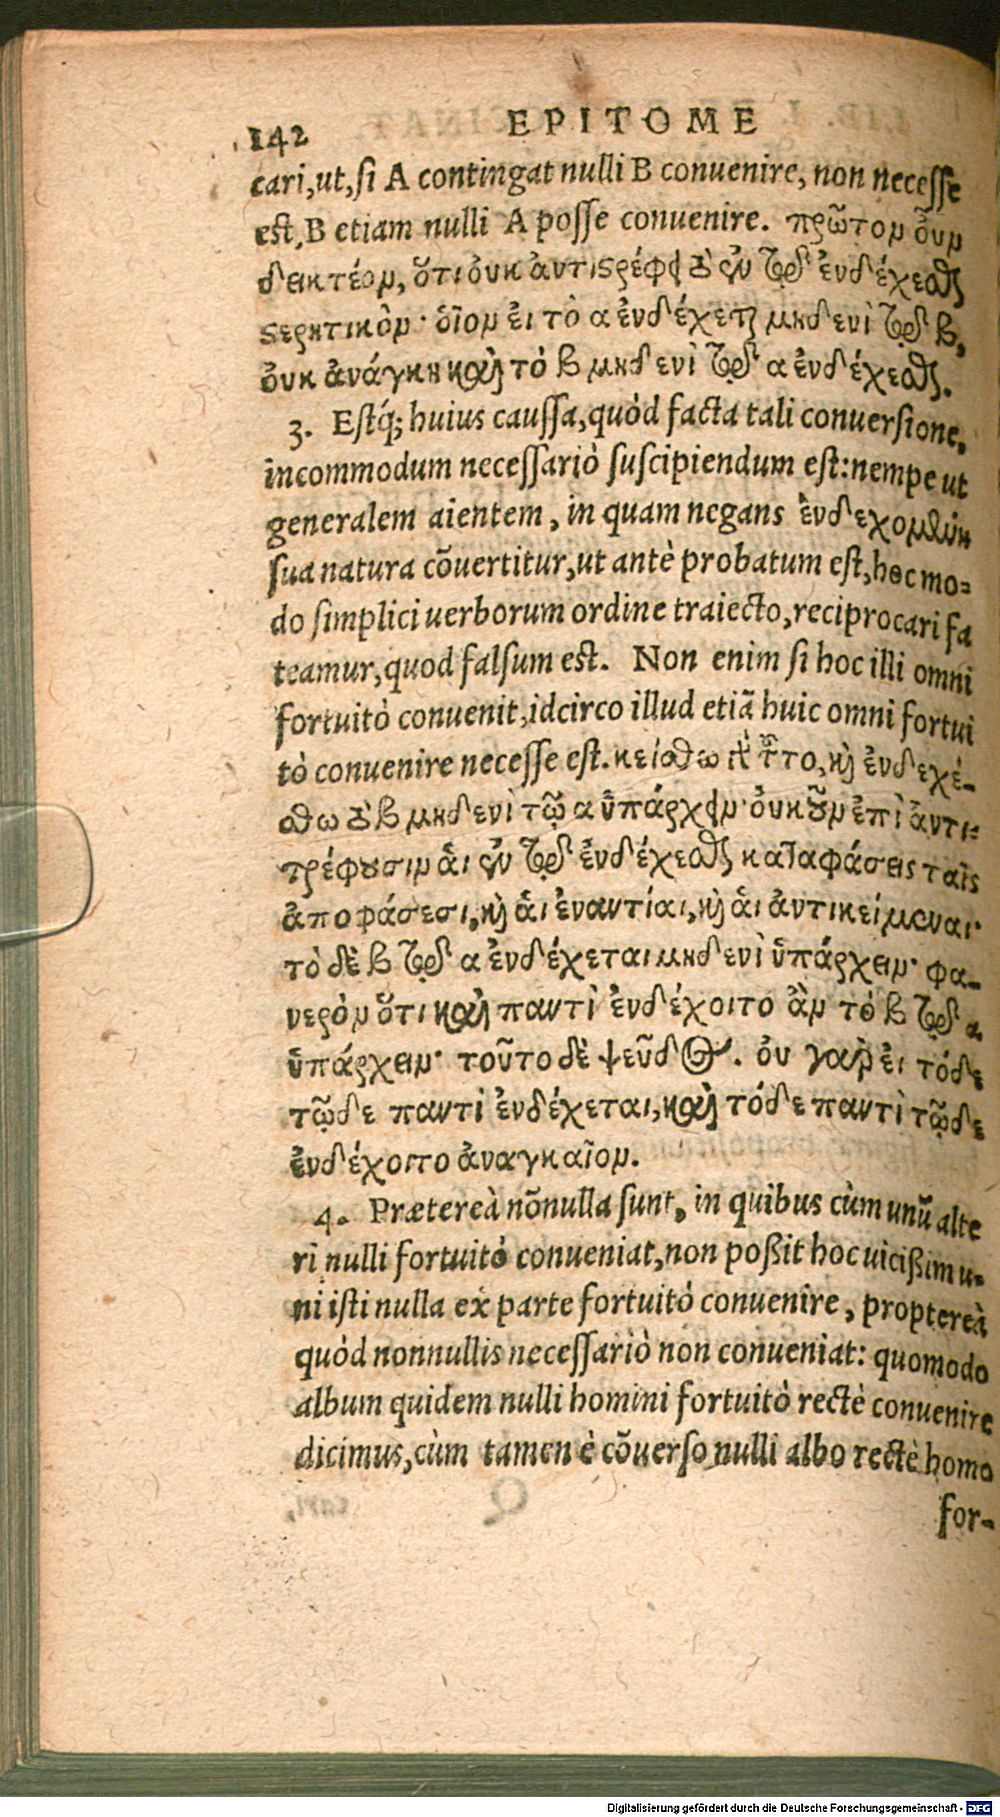 142 EPITOME
cari, ut, si A contingat nulli B conuenire, non necesse
est, B etiam nulli A posse conuenire. πρῶτον οὖν
δεικτέον, ὅτι οὐκ ἀντιστρέφει τὸ ἐν τῷ ἐνδέχεσθαι
στερητικὸν· οἷον εἰ τὸ α ἐνδέχεται μηδενὶ τῷ β,
οὐκ ἀνάγκη καὶ τὸ β μηδενὶ τῷ α ἐνδέχεσθαι.
3. Estq́; huius caussa, quòd facta tali conuersione,
incommodum necessariò suscipiendum est: nempe ut
generalem aientem, in quam negans ἐνδεχομένη
sua natura cōuertitur, ut antè probatum est, hoc mo-
do simplici uerborum ordine traiecto, reciprocari fa
teamur, quod falsum est. Non enim si hoc illi omni
fortuitò conuenit, idcirco illud etiā huic omni fortui
tò conuenire necesse est. κείσθω γὰρ τοῦτο, καὶ ἐνδεχέ-
σθω τὸ β μηδενὶ τῷ α ὑπάρχειν· οὐκοῦν ἐπὶ ἀντι-
τρέφουσιν αἱ ἐν τῷ ἐνδέχεσθαι καταφάσεις ταῖς
ἀποφάσεσι, καὶ αἱ ἐναντίαι, καὶ αἱ ἀντικείμεναι·
τὸ δὲ β τῷ α ἐνδέχεται μηδενὶ ὑπάρχειν· φα-
νερὸν ὅτι καὶ παντὶ ἐνδέχοιτο ἂν τὸ β τῷ α
ὑπάρχειν· τοῦτο δὲ ψεῦδος. οὐ γὰρ εἰ τόδε
τῷδε παντὶ ἐνδέχεται, καὶ τόδε παντὶ τῷδε
ἐνδέχοιτο ἀναγκαῖον.
4. Prætereà nōnulla sunt, in quibus cùm unū alte
ri nulli fortuitò conueniat, non poßit hoc uicißim u-
ni isti nulla ex parte fortuitò conuenire, proptereà
quòd nonnullis necessariò non conueniat: quomodo
album quidem nulli homini fortuitò rectè conuenire
dicimus, cùm tamen è cōuerso nulli albo rectè homo
for-
Digitalisierung gefördert durch die Deutsche Forschungsgemeinschaft - DFG